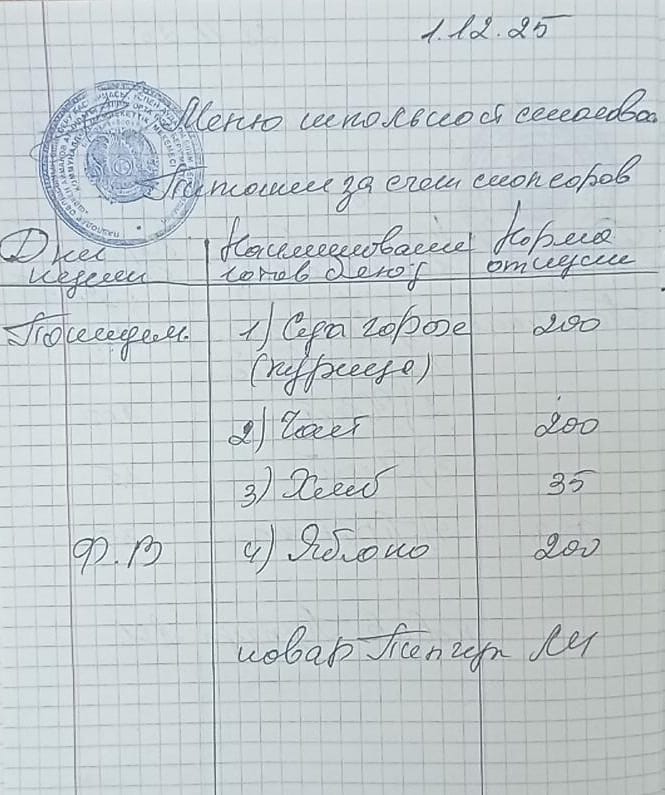 1.12.25
Меню школьной столовой
Питание за счет спонсоров
Дни недели
Наименование готов блюд
Норма отпуска
Понедел.
1) Суп горох (курица) 200
2) Чай 200
3) Хлеб 35
Ф.В 4) Яблоко 200
повар